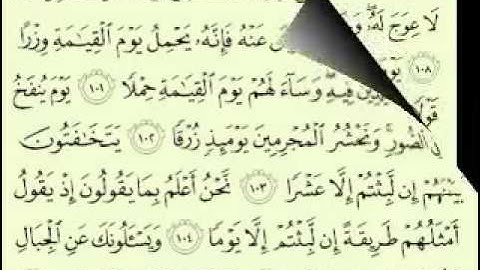 لَا عِوَجَ لَهُۥ عَنْهُ فَإِنَّهُۥ يَحْمِلُ يَوْمَ ٱلْقِيَٰمَةِ وِزْرًا
١٠٨ فِيهِ ۖ وَسَآءَ لَهُمْ يَوْمَ ٱلْقِيَٰمَةِ حِمْلًا ١٠١ يَوْمَ يُنفَخُ
فِى ٱلصُّورِ ۚ وَنَحْشُرُ ٱلْمُجْرِمِينَ يَوْمَئِذٍ زُرْقًا ١٠٢ يَتَخَٰفَتُونَ
بَيْنَهُمْ إِن لَّبِثْتُمْ إِلَّا عَشْرًا ١٠٣ نَّحْنُ أَعْلَمُ بِمَا يَقُولُونَ إِذْ يَقُولُ
أَمْثَلُهُمْ طَرِيقَةً إِن لَّبِثْتُمْ إِلَّا يَوْمًا ١٠٤ وَيَسْـَٔلُونَكَ عَنِ ٱلْجِبَالِ